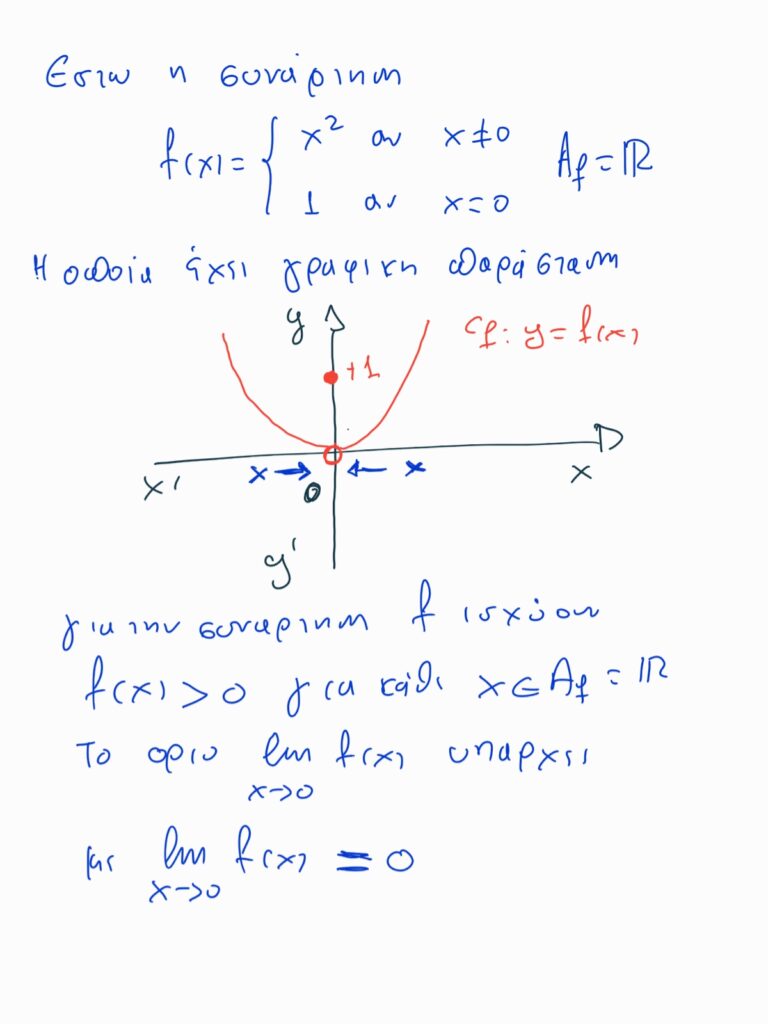 Εστω η συνάρτηση
f(x) = { x² αν x≠0 A_f = ℝ
1 αν x=0
Η οποία έχει γραφική παράσταση
y C_f: y = f(x)
+1
x → ← x
x' O x
y'
για την συναρτηση f ισχύουν
f(x) > 0 για κάθε x ∈ A_f = ℝ
Το οριο lim f(x) υπαρχει
x→0
με lim f(x) = 0
x→0